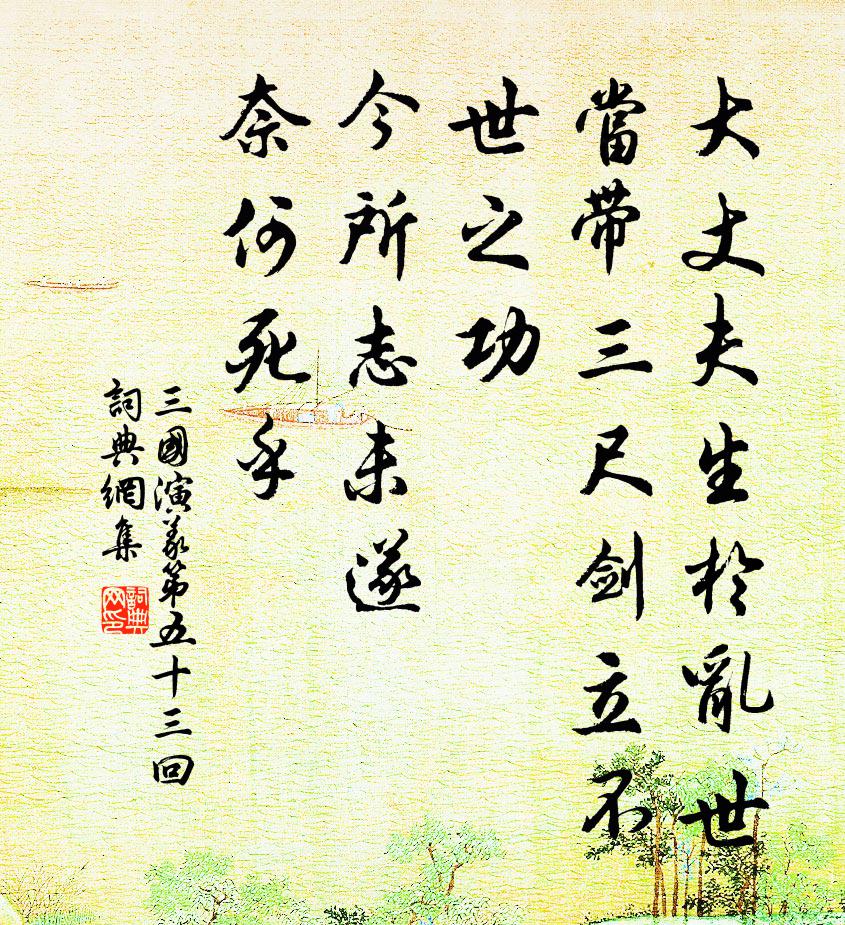 大丈夫生於亂世
當带三尺劍立不
世之功
今所志未遂
奈何死乎
三國演義第五十三回
詞典網集
詞典
网印